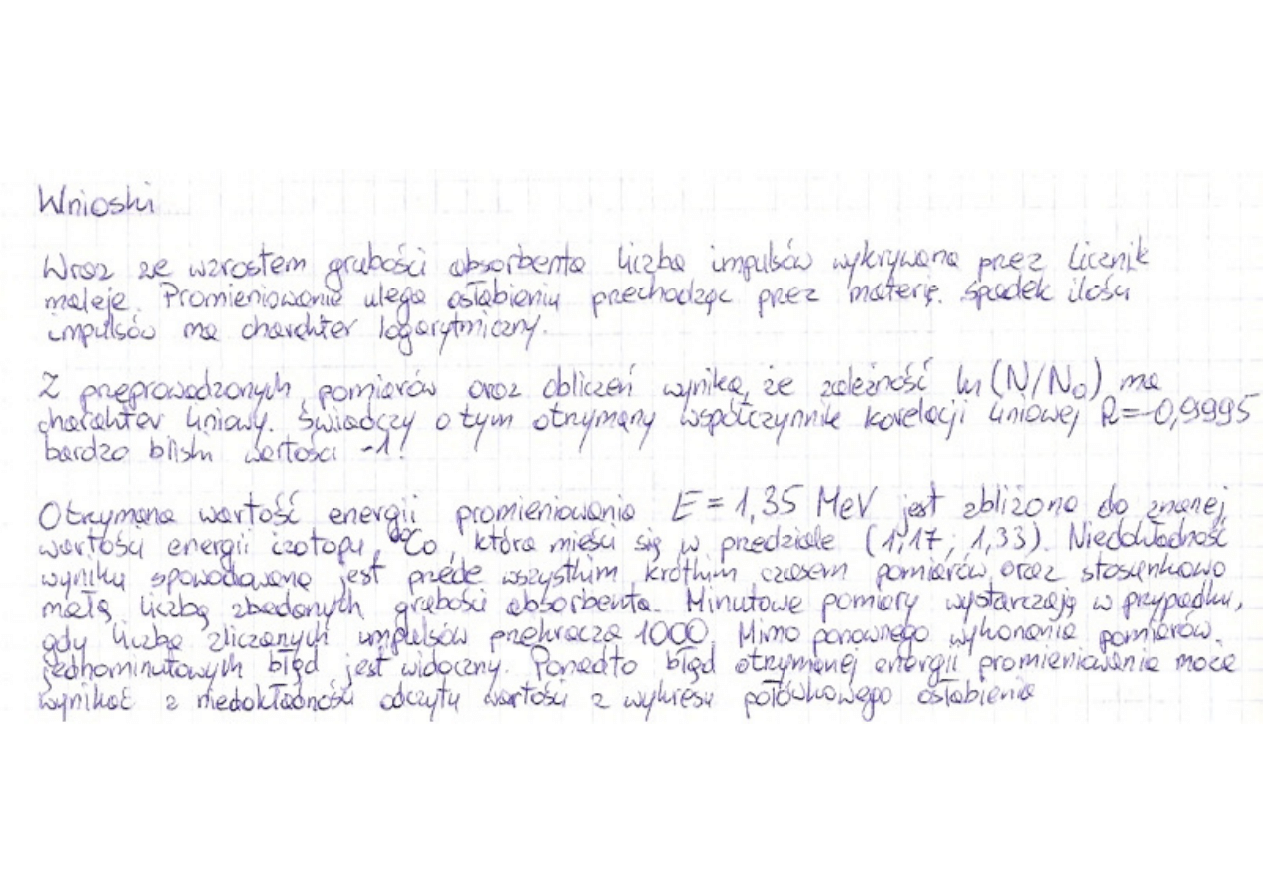 Wnioski
Wraz ze wzrostem grubości absorbenta liczba impulsów wykrywana przez licznik
maleje. Promieniowanie ulega osłabieniu przechodząc przez materię. Spadek ilości
impulsów ma charakter logarytmiczny.
Z przeprowadzonych pomiarów oraz obliczeń wynika, że zależność ln(N/N₀) ma
charakter liniowy. Świadczy o tym otrzymany współczynnik korelacji liniowej R=-0,9995
bardzo bliski wartości -1.
Otrzymana wartość energii promieniowania E = 1,35 MeV jest zbliżona do znanej
wartości energii izotopu ⁶⁰Co, która mieści się w przedziale (1,17; 1,33). Niedokładność
wyniku spowodowana jest przede wszystkim krótkim czasem pomiarów oraz stosunkowo
małą liczbą zbadanych grubości absorbenta. Minutowe pomiary wystarczają w przypadku,
gdy liczba zliczanych impulsów przekracza 1000. Mimo ponownego wykonania pomiarów
jednominutowych błąd jest widoczny. Ponadto błąd otrzymanej energii promieniowania może
wynikać z niedokładności odczytu wartości z wykresu połówkowego osłabienia